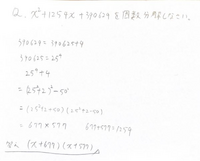 Q. x²+1254x+390629を因数分解しなさい。
390629=390625+4
390625=25⁴
25⁴+4
=(25²+2)²-50²
=(25²+2+50)(25²+2-50)
=677×577 677+577=1254
答え (x+677)(x+577)